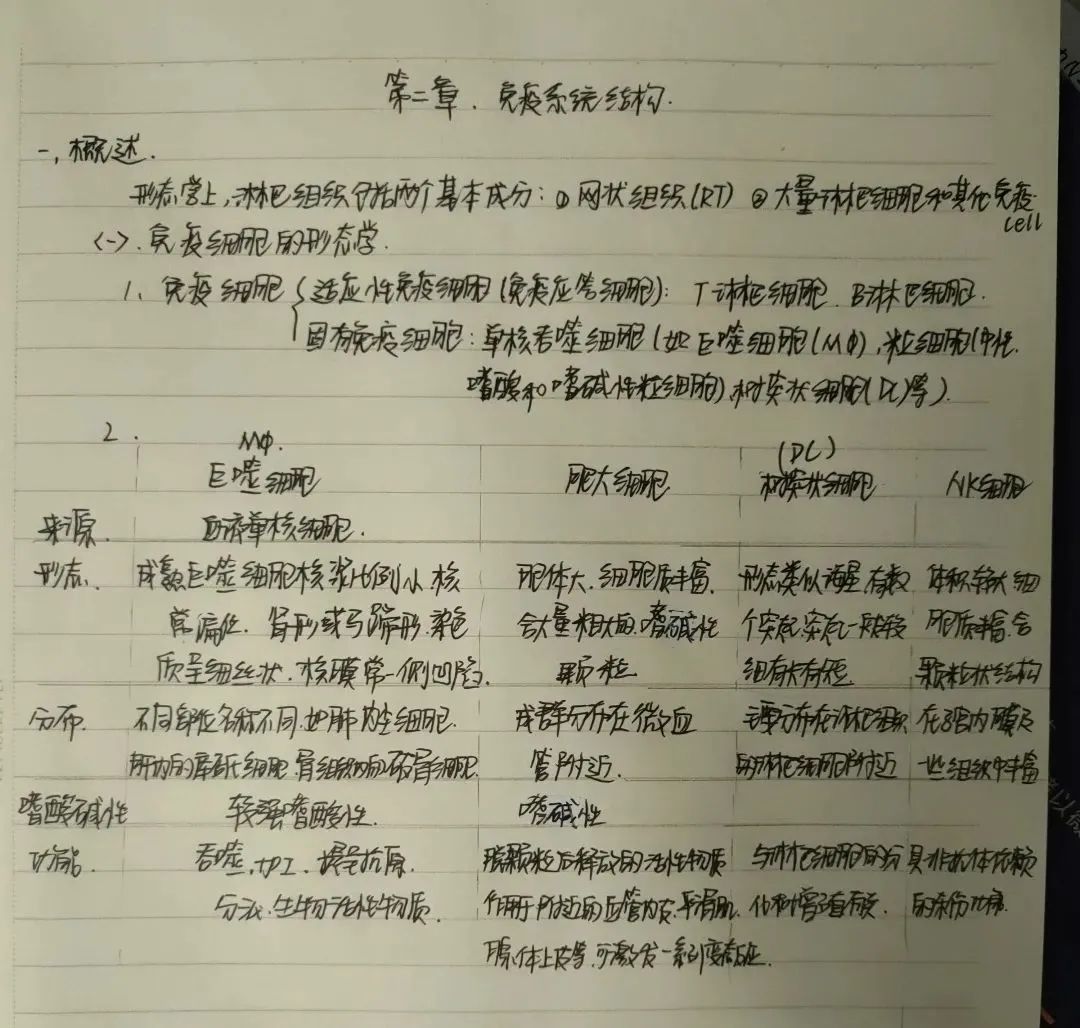 第二章. 免疫系统结构.
一, 概述.
形态学上,淋巴组织包括两个基本成分: ① 网状组织(RT) ② 大量淋巴细胞和其他免疫cell
<一>. 免疫细胞的形态学.
1. 免疫细胞 { 适应性免疫细胞(免疫应答细胞): T淋巴细胞. B淋巴细胞.
固有免疫细胞: 单核吞噬细胞(如巨噬细胞(MΦ),粒细胞(中性.
嗜酸和嗜碱性粒细胞),树突状细胞(DC)等).
2. MΦ. (DC)
巨噬细胞 肥大细胞 树突状细胞 NK细胞
来源. 血液单核细胞.
形态. 成熟巨噬细胞核浆比例小.核 胞体大.细胞质丰富. 形态类似海星.有数 体积较大细
常偏位. 肾形或马蹄形.染色 含大量粗大的.嗜碱性 个突起.突起一般较 胞质丰富.含
质呈细丝状.核膜常一侧凹陷. 颗粒 细有长有短. 颗粒状结构
分布. 不同部位名称不同.如肺内尘细胞. 成群分布在微血 主要分布在淋巴组织 在子宫内膜及
肝内的库矾氏细胞.骨组织内的破骨细胞. 管附近. 的淋巴细胞附近 一些组织中丰富
嗜酸碱性 较强嗜酸性. 嗜碱性
功能. 吞噬, 提呈抗原. 脱颗粒后释放的活性物质 与淋巴细胞的分 具非抗体依赖
分泌.生物活性物质. 作用于附近的血管内皮.平滑肌. 化和增殖有关. 的杀伤功能.
腺体上皮等.可激发一系列变态反应.